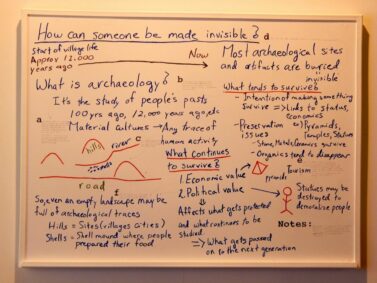 How can someone be made invisible? a
Start of village life
Approx 12.000
years ago
Now
What is archaeology?
b
It's the study of people's pasts
100 yrs ago, 12,000 years ago, etc
Material cultures → Any trace of
human activity
a
hills
river
c
sounds
road
f
So, even an empty landscape may be
full of archaeological traces
Hills = Sites (villages cities)
Shells = Shell mound where people
prepared their food
What continues
to survive?
1. Economic value
2. Political value
Affects what gets protected
and what continues to be
studied
⇒ What gets passed
on to the next generation
Most archaeological sites
and artifacts are buried
invisible
What tends to survive?
- Intention of making something
survive ⇒ Links to status,
economics
- Preservation
issues
Pyramids,
temples, statues
- Stone, Metal, Ceramics survive
- Organics tend to disappear
Tourism
pyramids
Statues may be
destroyed to
demoralise people
Notes: